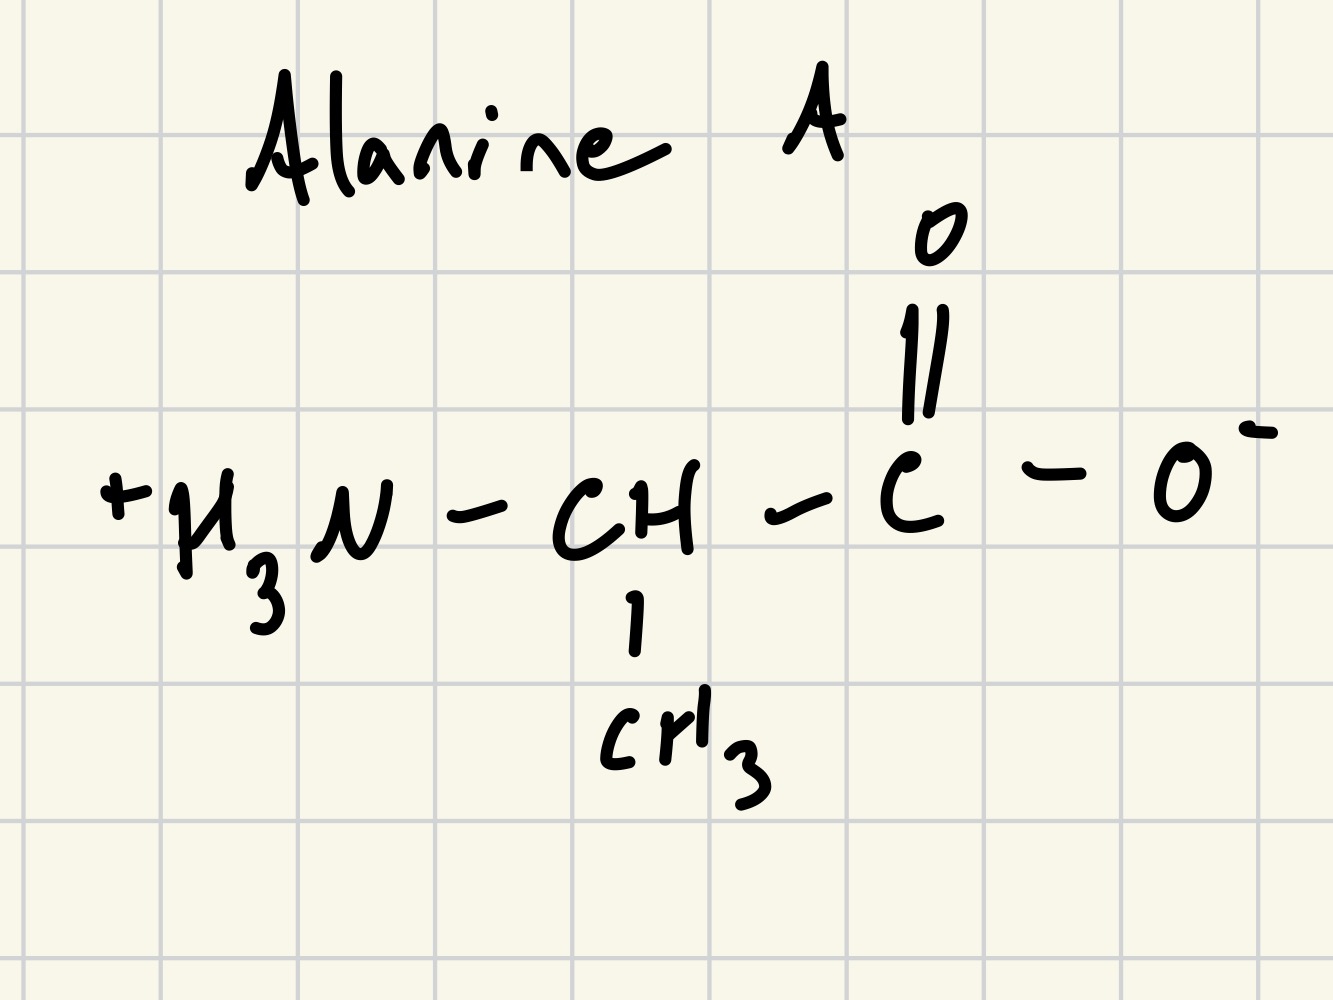 Alanine A
O
||
+H3N - CH - C - O-
|
CH3